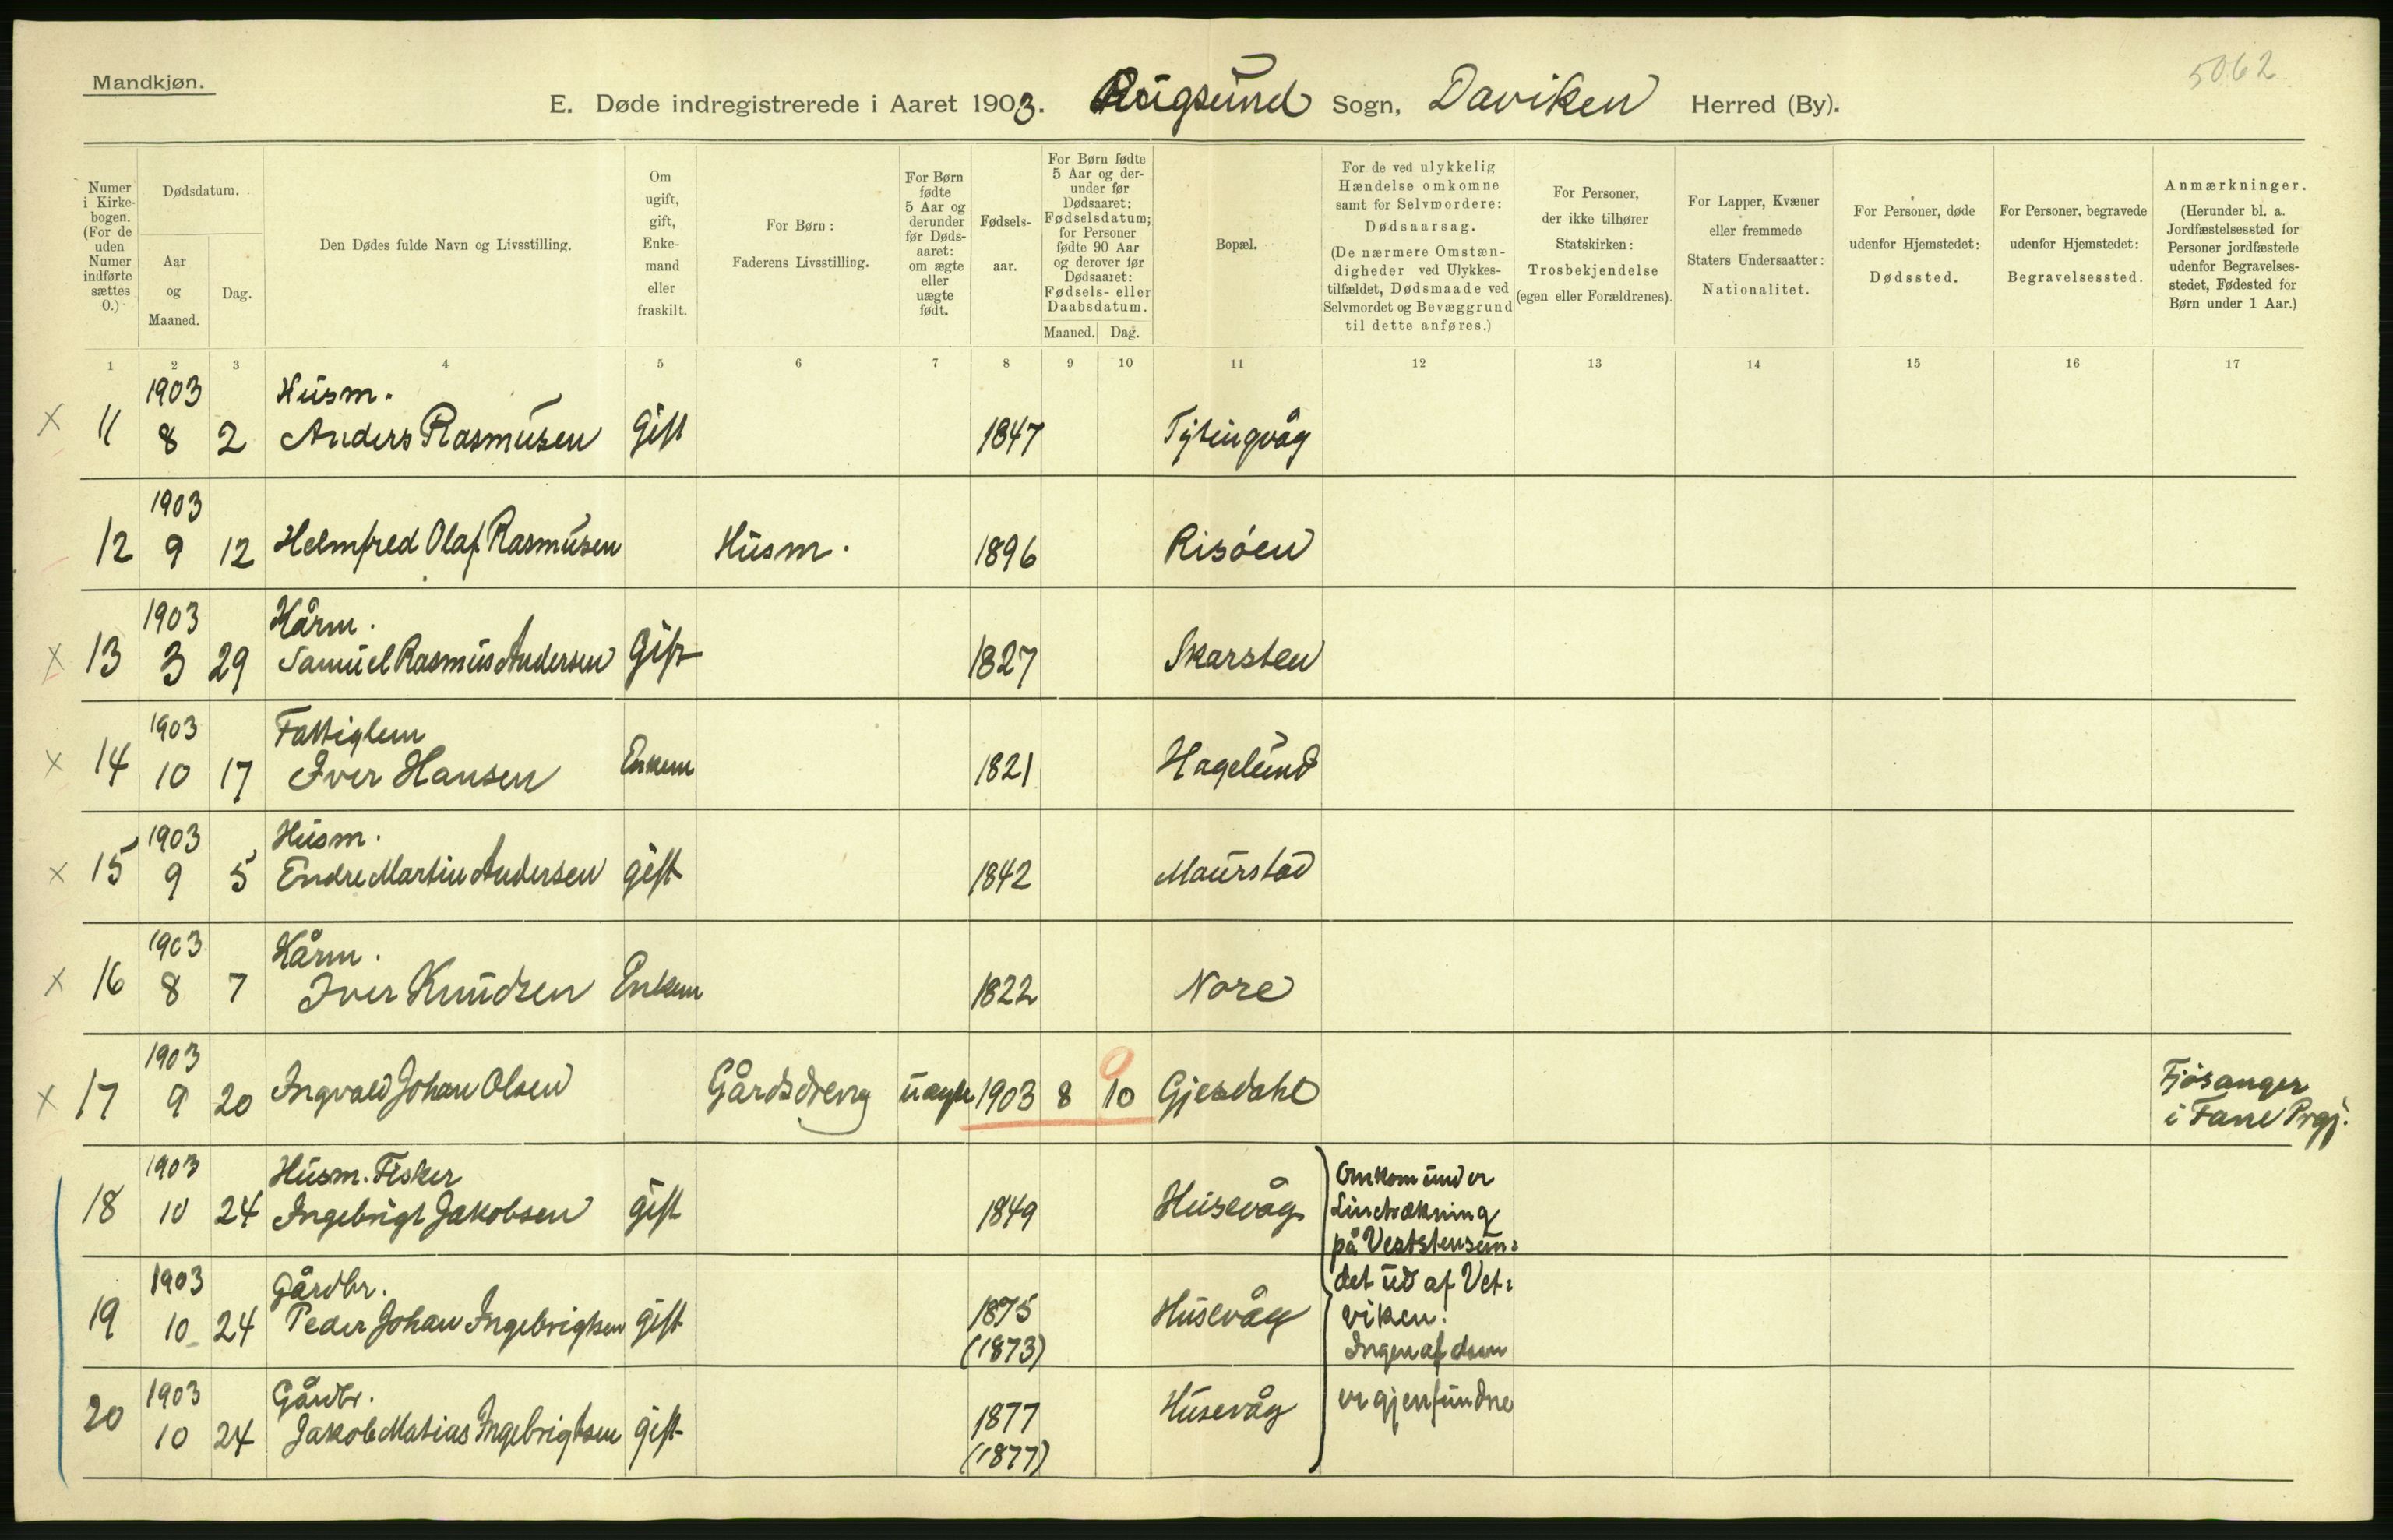 5062
Mandkjøn.
E. Døde indregistrerede i Aaret 1903. Rugsund Sogn, Daviken Herred (By).
Numer i Kirkebogen. (For de uden Numer indførte sættes 0.)
Dødsdatum.
Aar og Maaned.
Dag.
Den Dødes fulde Navn og Livsstilling.
Om ugift, gift, Enkemand eller fraskilt.
For Børn: Faderens Livsstilling.
For Børn fødte 5 Aar og derunder før Dødsaaret: om ægte eller uægte født.
Fødselsaar.
For Børn fødte 5 Aar og derunder før Dødsaaret: Fødselsdatum; for Personer fødte 90 Aar og derover før Dødsaaret: Fødsels- eller Daabsdatum.
Maaned. Dag.
Bopæl.
For de ved ulykkelig Hændelse omkomne samt for Selvmordere: Dødsaarsag. (De nærmere Omstændigheder ved Ulykkestilfældet, Dødsmaade ved Selvmordet og Bevæggrund til dette anføres.)
For Personer, der ikke tilhører Statskirken: Trosbekjendelse (egen eller Forældrenes).
For Lapper, Kvæner eller fremmede Staters Undersaatter: Nationalitet.
For Personer, døde udenfor Hjemstedet: Dødssted.
For Personer, begravede udenfor Hjemstedet: Begravelsessted.
Anmærkninger. (Herunder bl. a. Jordfæstelsessted for Personer jordfæstede udenfor Begravelsesstedet, Fødested for Børn under 1 Aar.)
1 2 3 4 5 6 7 8 9 10 11 12 13 14 15 16 17
1903 Husm.
x 11 8 2 Anders Rasmusen Gift 1847 Tytingvåg
1903
12 9 12 Helmfred Olaf Rasmusen Husm. 1896 Risøen
1903 Kårm.
x 13 3 29 Samuel Rasmus Andersen Gift 1827 Skarsten
1903 Fattiglem
x 14 10 17 Iver Hansen Enkem 1821 Hagelund
1903 Husm.
x 15 9 5 Endre Martin Andersen gift 1842 Maurstad
1903 Kårm.
x 16 8 7 Iver Knudsen Enkem 1822 Nore
1903
x 17 9 20 Ingvald Johan Olsen Gårdsdreng uægte 1903 8 10 Gjesdahl Fjøsanger
i Fane Prgj.
1903 Husm. Fisker
18 10 24 Ingebrigt Jakobsen gift 1849 Husevåg
1903 Gårdbr.
19 10 24 Peder Johan Ingebrigtsen gift 1875 Husevåg
(1873)
1903 Gårdbr.
20 10 24 Jakob Matias Ingebrigtsen gift 1877 Husevåg
(1877)
Omkom under
Linetrækning
på Veststensun=
det ud af Vet=
viken.
Ingen af dem
er gjenfundne